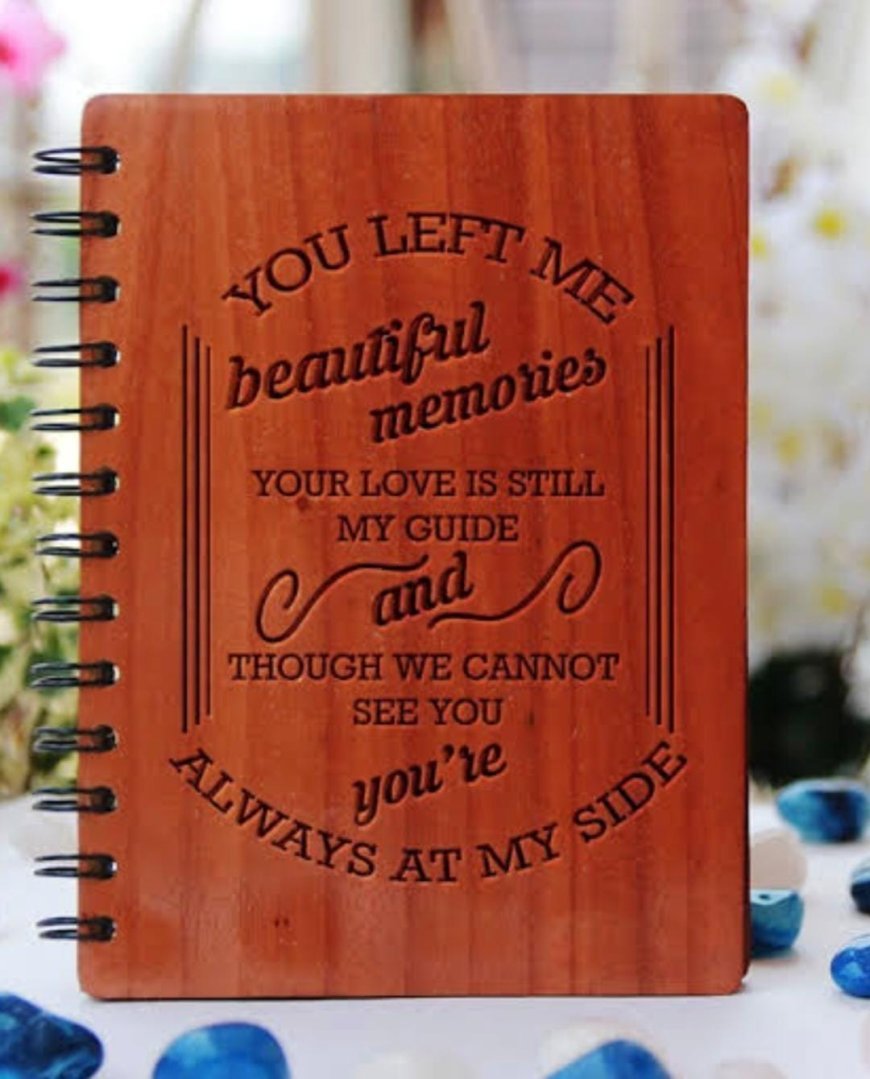 YOU LEFT ME
beautiful
memories
YOUR LOVE IS STILL
MY GUIDE
and
THOUGH WE CANNOT
SEE YOU
you're
ALWAYS AT MY SIDE